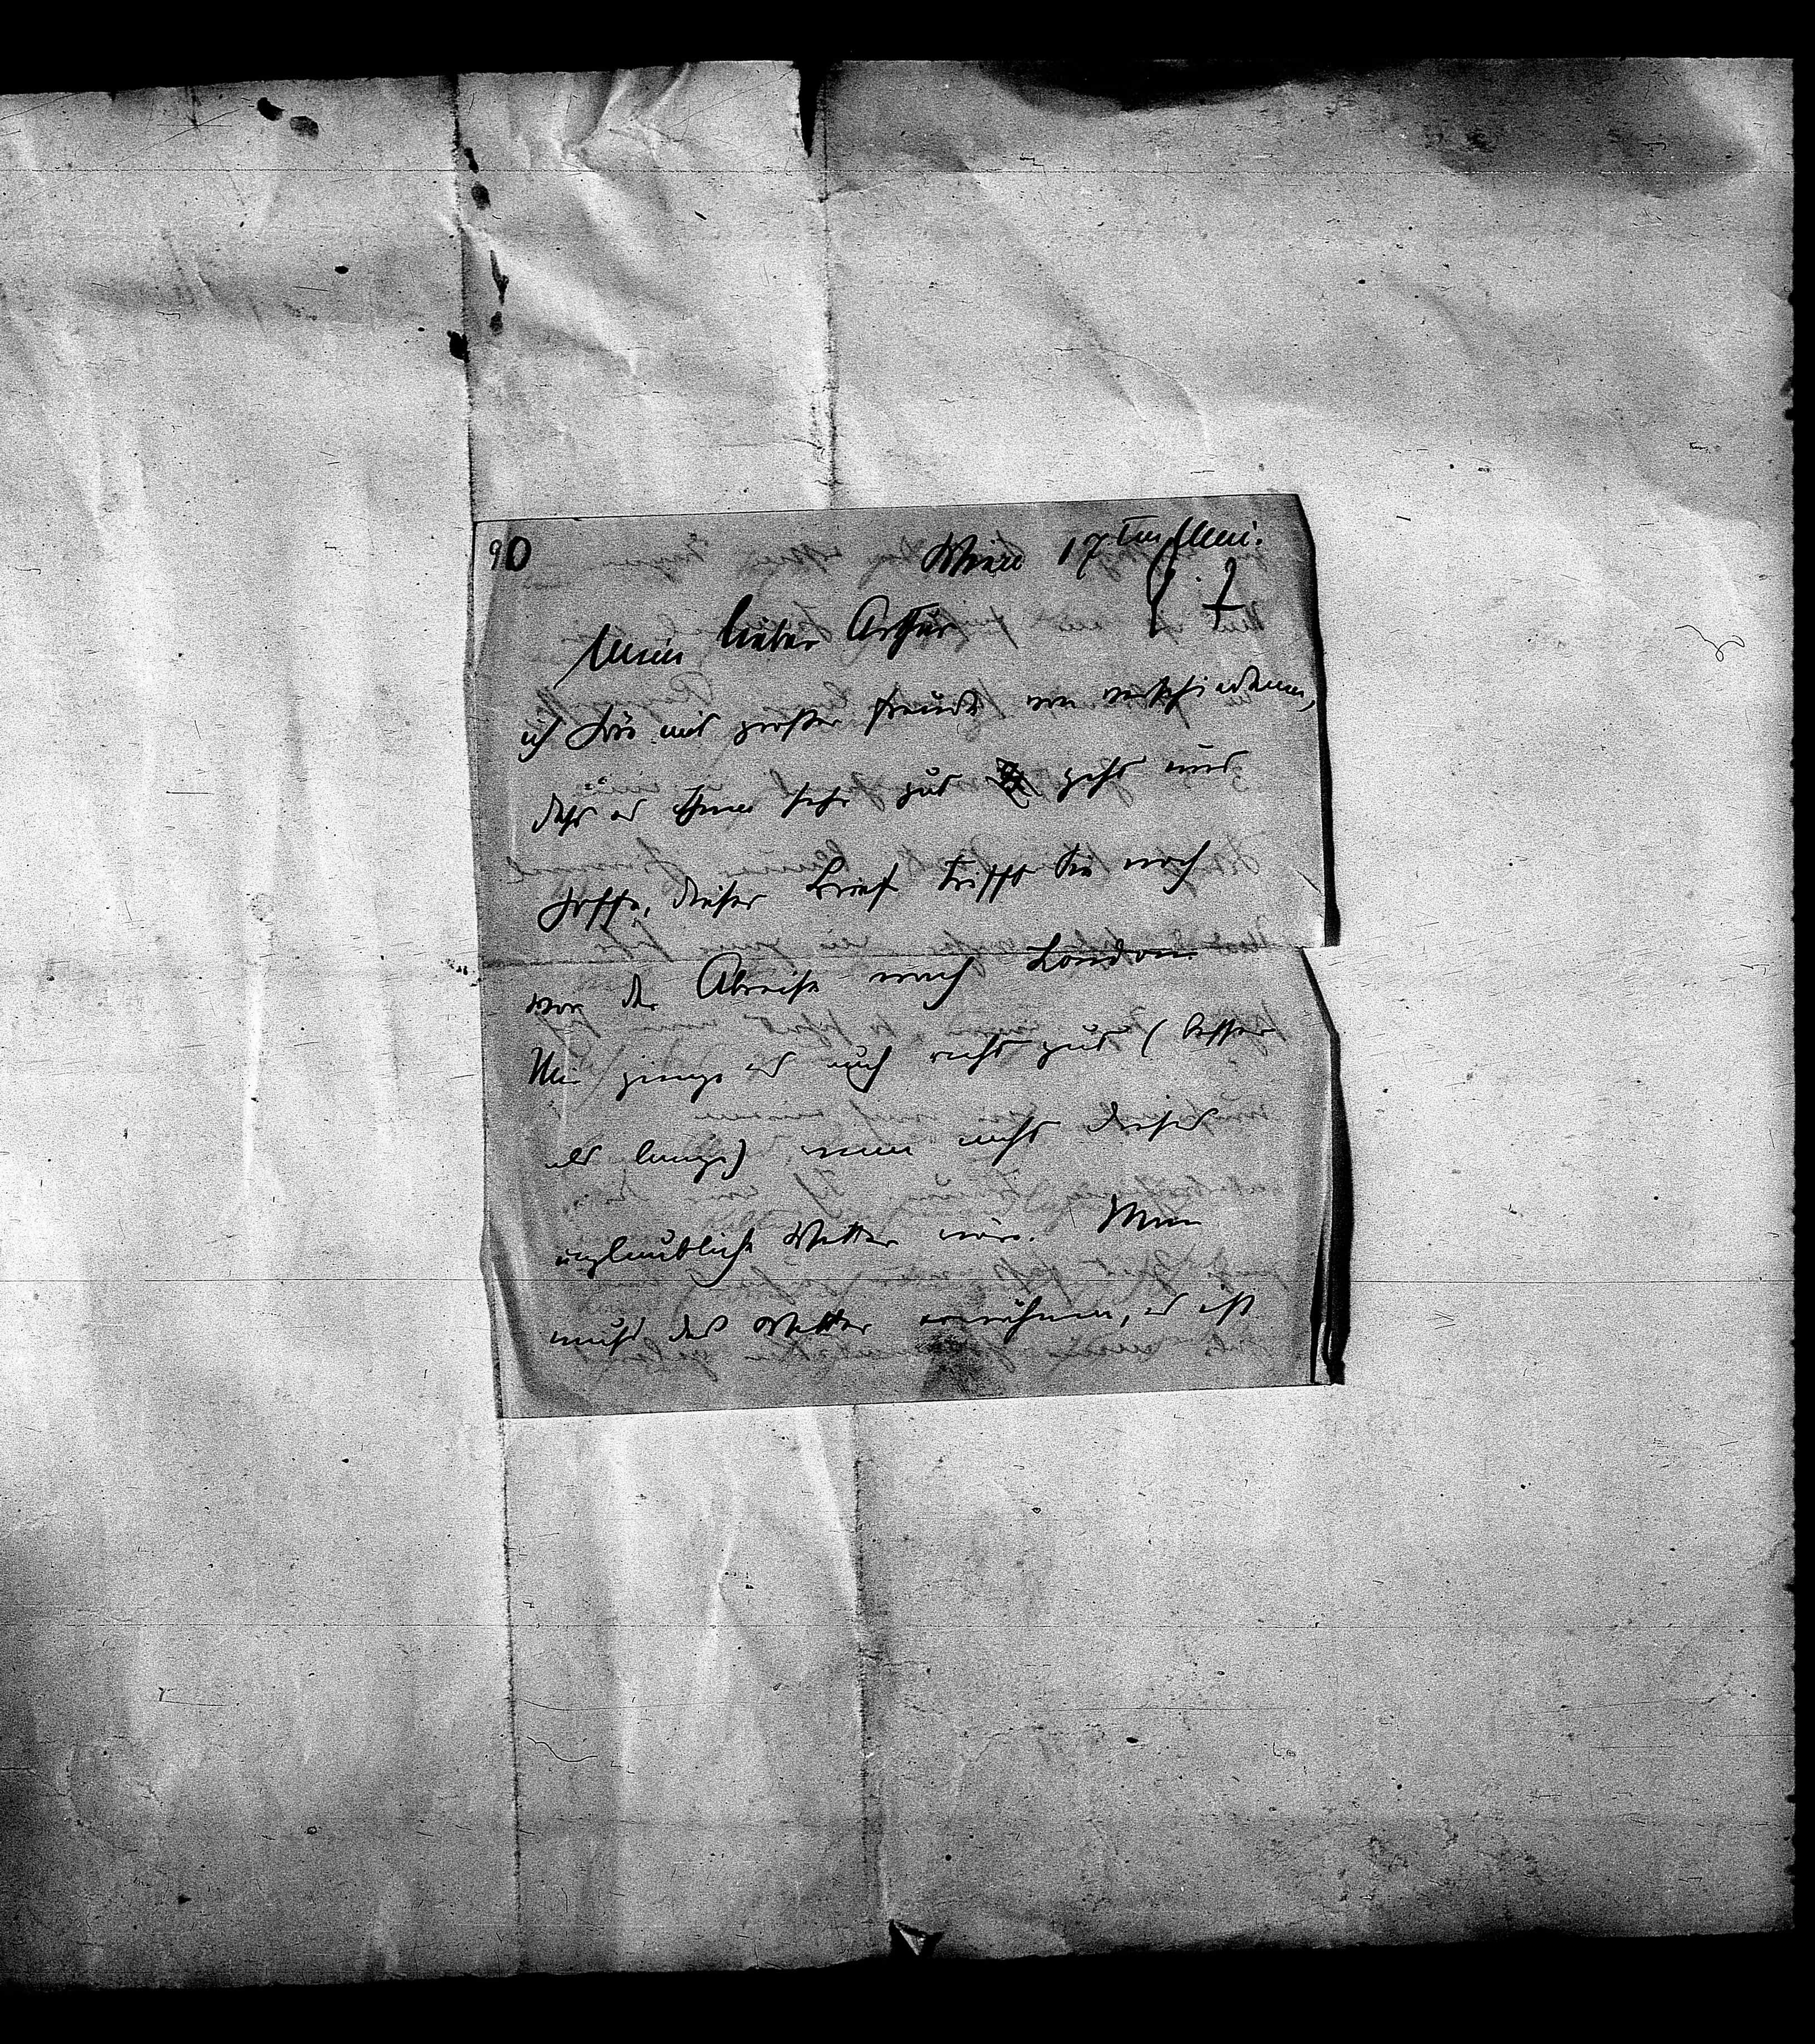 90
Wien 17ten Mai.
Mein lieber Arthur
ich höre mit großer Freude von verschiedenen,
daß es Ihnen sehr gut geht und
hoffe, dieser Brief trifft Sie noch
vor der Abreise nach London.
Mir ginge es auch recht gut (besser
als lange) wenn nicht dieses
unglaubliche Wetter wäre. Man
muß das Wetter erwähnen, es ist